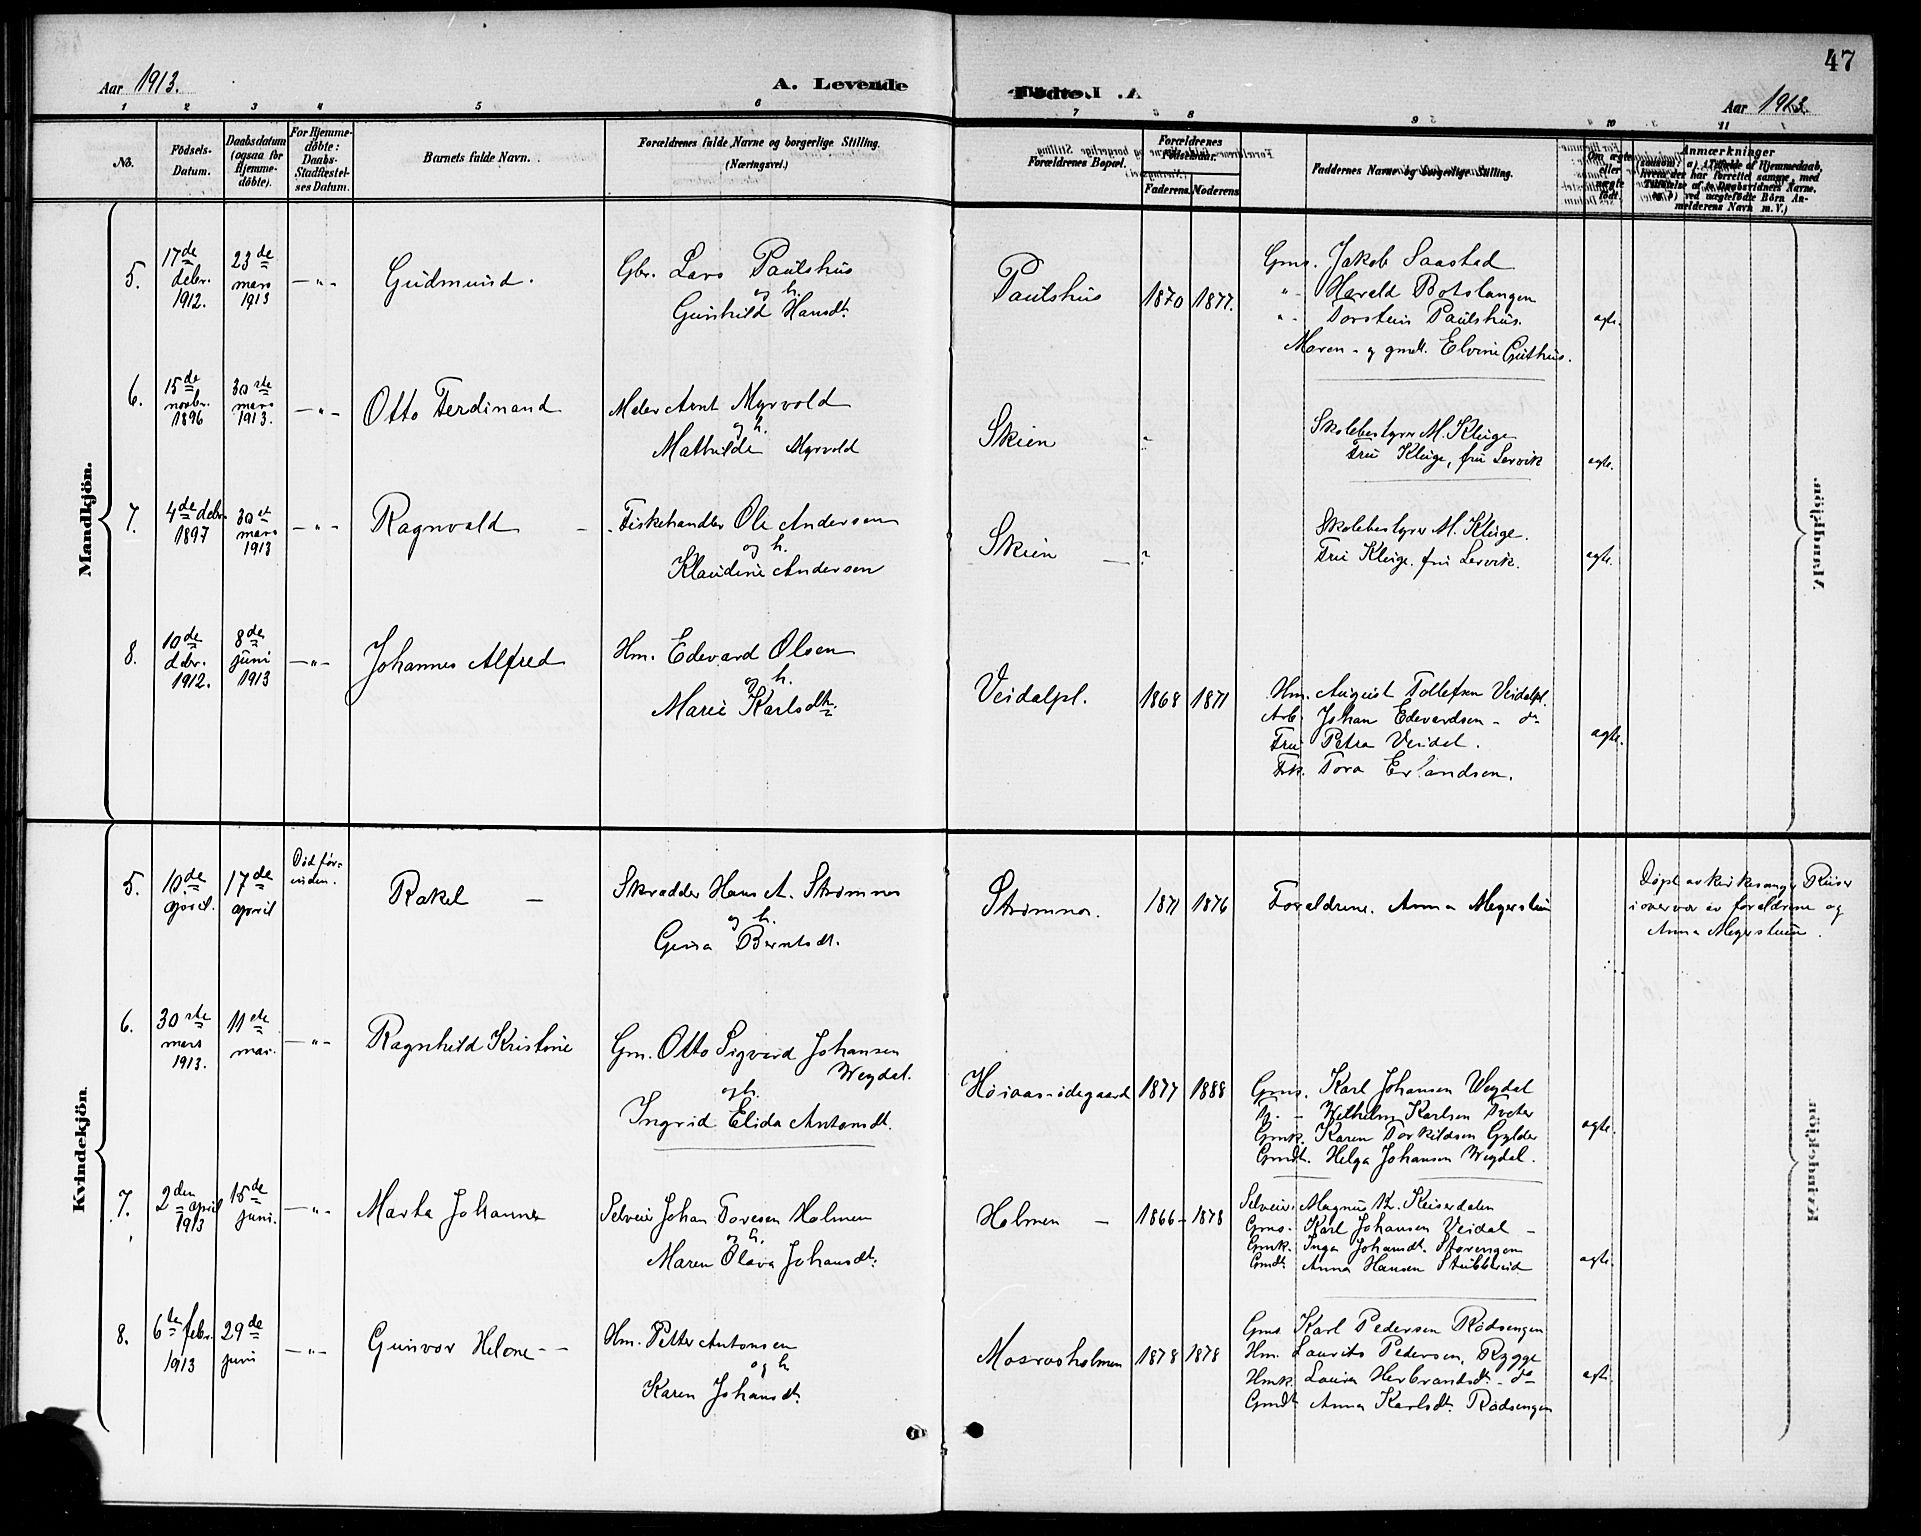 47
Aar 1913.
A. Levende
Födte.
Aar 1913.
1 2 3 4 5 6 7 8 9 10 11
No.
Födsels-Datum.
Daabsdatum (ogsaa for Hjemmedöbte).
For Hjemmedöbte: Daabs-Stadfæstelses Datum.
Barnets fulde Navn.
Forældrenes fulde Navne og borgerlige Stilling.
(Næringsvei.)
Forældrenes Bopæl.
Forældrenes Födselsaar.
Faderens.
Moderens.
Faddernes Navne og borgerlige Stilling.
Om ægte eller uægte födt.
Anmærkninger
(saasom: a) i Tilfælde af Hjemmedaab,
hvem der har forrettet samme, med
Tilföielse af to Daabsvidners Navne,
og b) ved uægtefödte Börn Anmelderens Navn m. V.)
Mandkjön.
5. 17de debr. 1912. 23de mars 1913 —"— Gudmund. Gbr. Lars Paulshus og h. Gunhild Hansdt. Paulshus 1870 1877.
Gms. Jakob Saastad
" Harald Botslangen
" Torstein Paulshus. ægte.
Maren - g gmdt. Elvine Guthus.
6. 15de novbr. 1896 30te mars 1913. —"— Otto Ferdinand Maler Arnt Myrvold og h. Mathilde Myrvold Skien "
Skolebestyrer M. Kluge
Fru Kluge, fru Lervik ægte.
7. 4de debr. 1897 30te mars 1913 —"— Ragnvald — Fiskehandler Ole Andersen og h. Klaudine Andersen Skien — "
Skolebestyrer M. Kluge.
Fru Kluge. fru Lervik. ægte.
8. 10de debr. 1912. 8de juni 1913 —"— Johannes Alfred Hm. Edevard Olsen og h. Marie Karlsdtr. Veidalpl. 1868 1871
Hm. August Tollefsen Veidalpl.
Arb. Johan Edevardsen - do
Fru Petra Veidal. ægte.
Frk. Tora Erlandsen.
Kvindekjön
5. 10de april. 17de april Död förinden. Rakel — Skrædder Hans A. Strömnes og h. Gina Berntsdt. Strömnes. 1871 1876 Forældrene. Anna Mejerstuen
Döpt av kirkesanger Riiser
i overvær av forældrene og
Anna Mejerstuen.
6. 30te mars 1913. 11ete mai. —"— Ragnhild Kristine Gm. Otto Sigvard Johansen Weydal. og h. Ingrid Elida Antonsdt. Höiaas-ödegaard 1877 1888
Gms. Karl Johansen Weydal
U. - Wilhelm Karlsen Tveter
Gmk. Karen Torkildsen Gylder ægte.
Gmdt. Helga Johansen Weydal.
7. 2den april 1913 15de juni. —"— Marta Johanne Selveier Johan Toresen Holmen og h. Maren Olava Johansdt. Holmen — 1866 - 1878
Selveier Magnus Kr. Keiserdalen
Gms. Karl Johansen Veidal -
Gmk. Inga Johansdt. Storengen
Gmdt. Anna Hansen Stubberud ægte.
8. 6te febr. 1913 29de juni —"— Gunvor Helene - - Hm. Petter Antonsen og h. Karen Johansdt. Mosrosholmen 1878 1878
Gms. Karl Pedersen Rödsengen
Hm. Laurits Pedersen, Rygge
Hmk. Laura Herbrandsdt. - do ægt.
Gmdt. Anna Karlsdt. Rödsengen